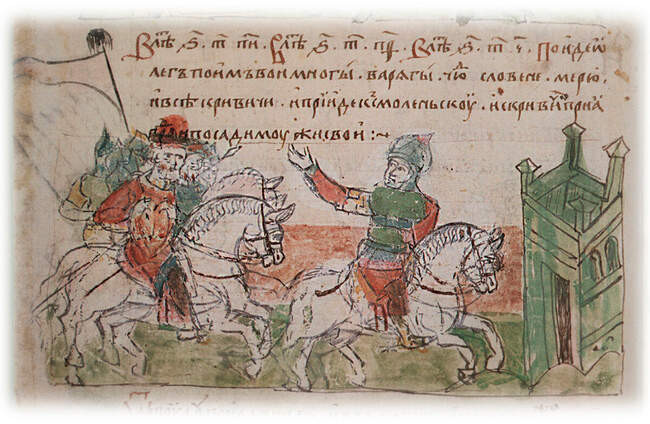 В лѣ ҂ѕ т пи . В лѣ ҂ѕ т пѳ . В лѣ ҂ѕ т ч . Поиде ѡ
легъ поимъ вои многы . варягы . чю словене . мерю
и всѣ кривичи . и прїиде к смоленьскоу . и с кривичи прия
посади моужи свои :~